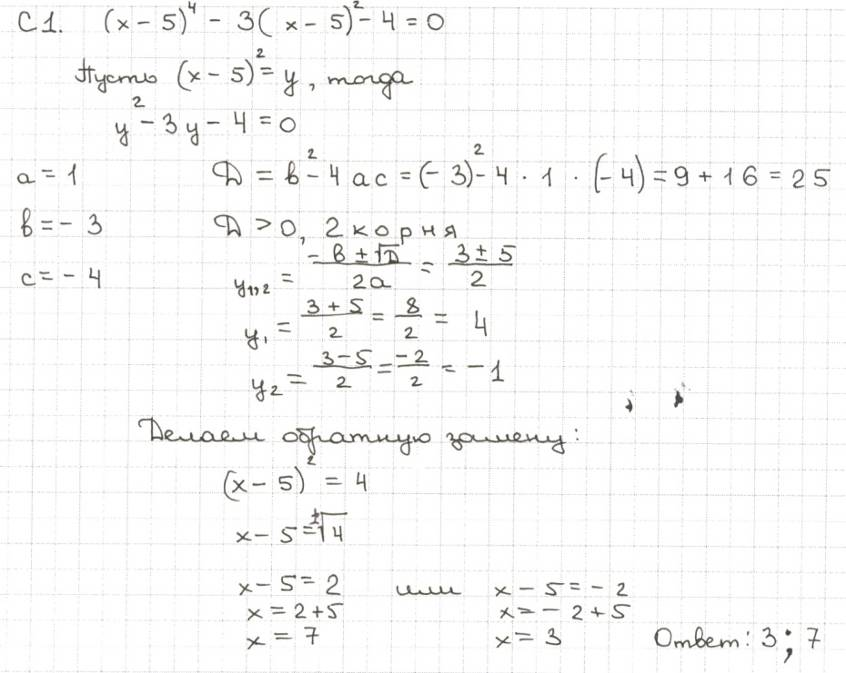 С1. (x – 5)⁴ – 3(x – 5)² – 4 = 0
Пусть (x – 5)² = y, тогда
y² – 3y – 4 = 0
a = 1 D = b² – 4ac = (–3)² – 4 · 1 · (–4) = 9 + 16 = 25
b = – 3 D > 0, 2 корня
c = – 4 y₁,₂ = (– b ± √D)/(2a) = (3 ± 5)/2
y₁ = (3 + 5)/2 = 8/2 = 4
y₂ = (3 – 5)/2 = (–2)/2 = – 1
Делаем обратную замену:
(x – 5)² = 4
x – 5 = ±√4
x – 5 = 2 или x – 5 = – 2
x = 2 + 5 x = – 2 + 5
x = 7 x = 3 Ответ: 3; 7